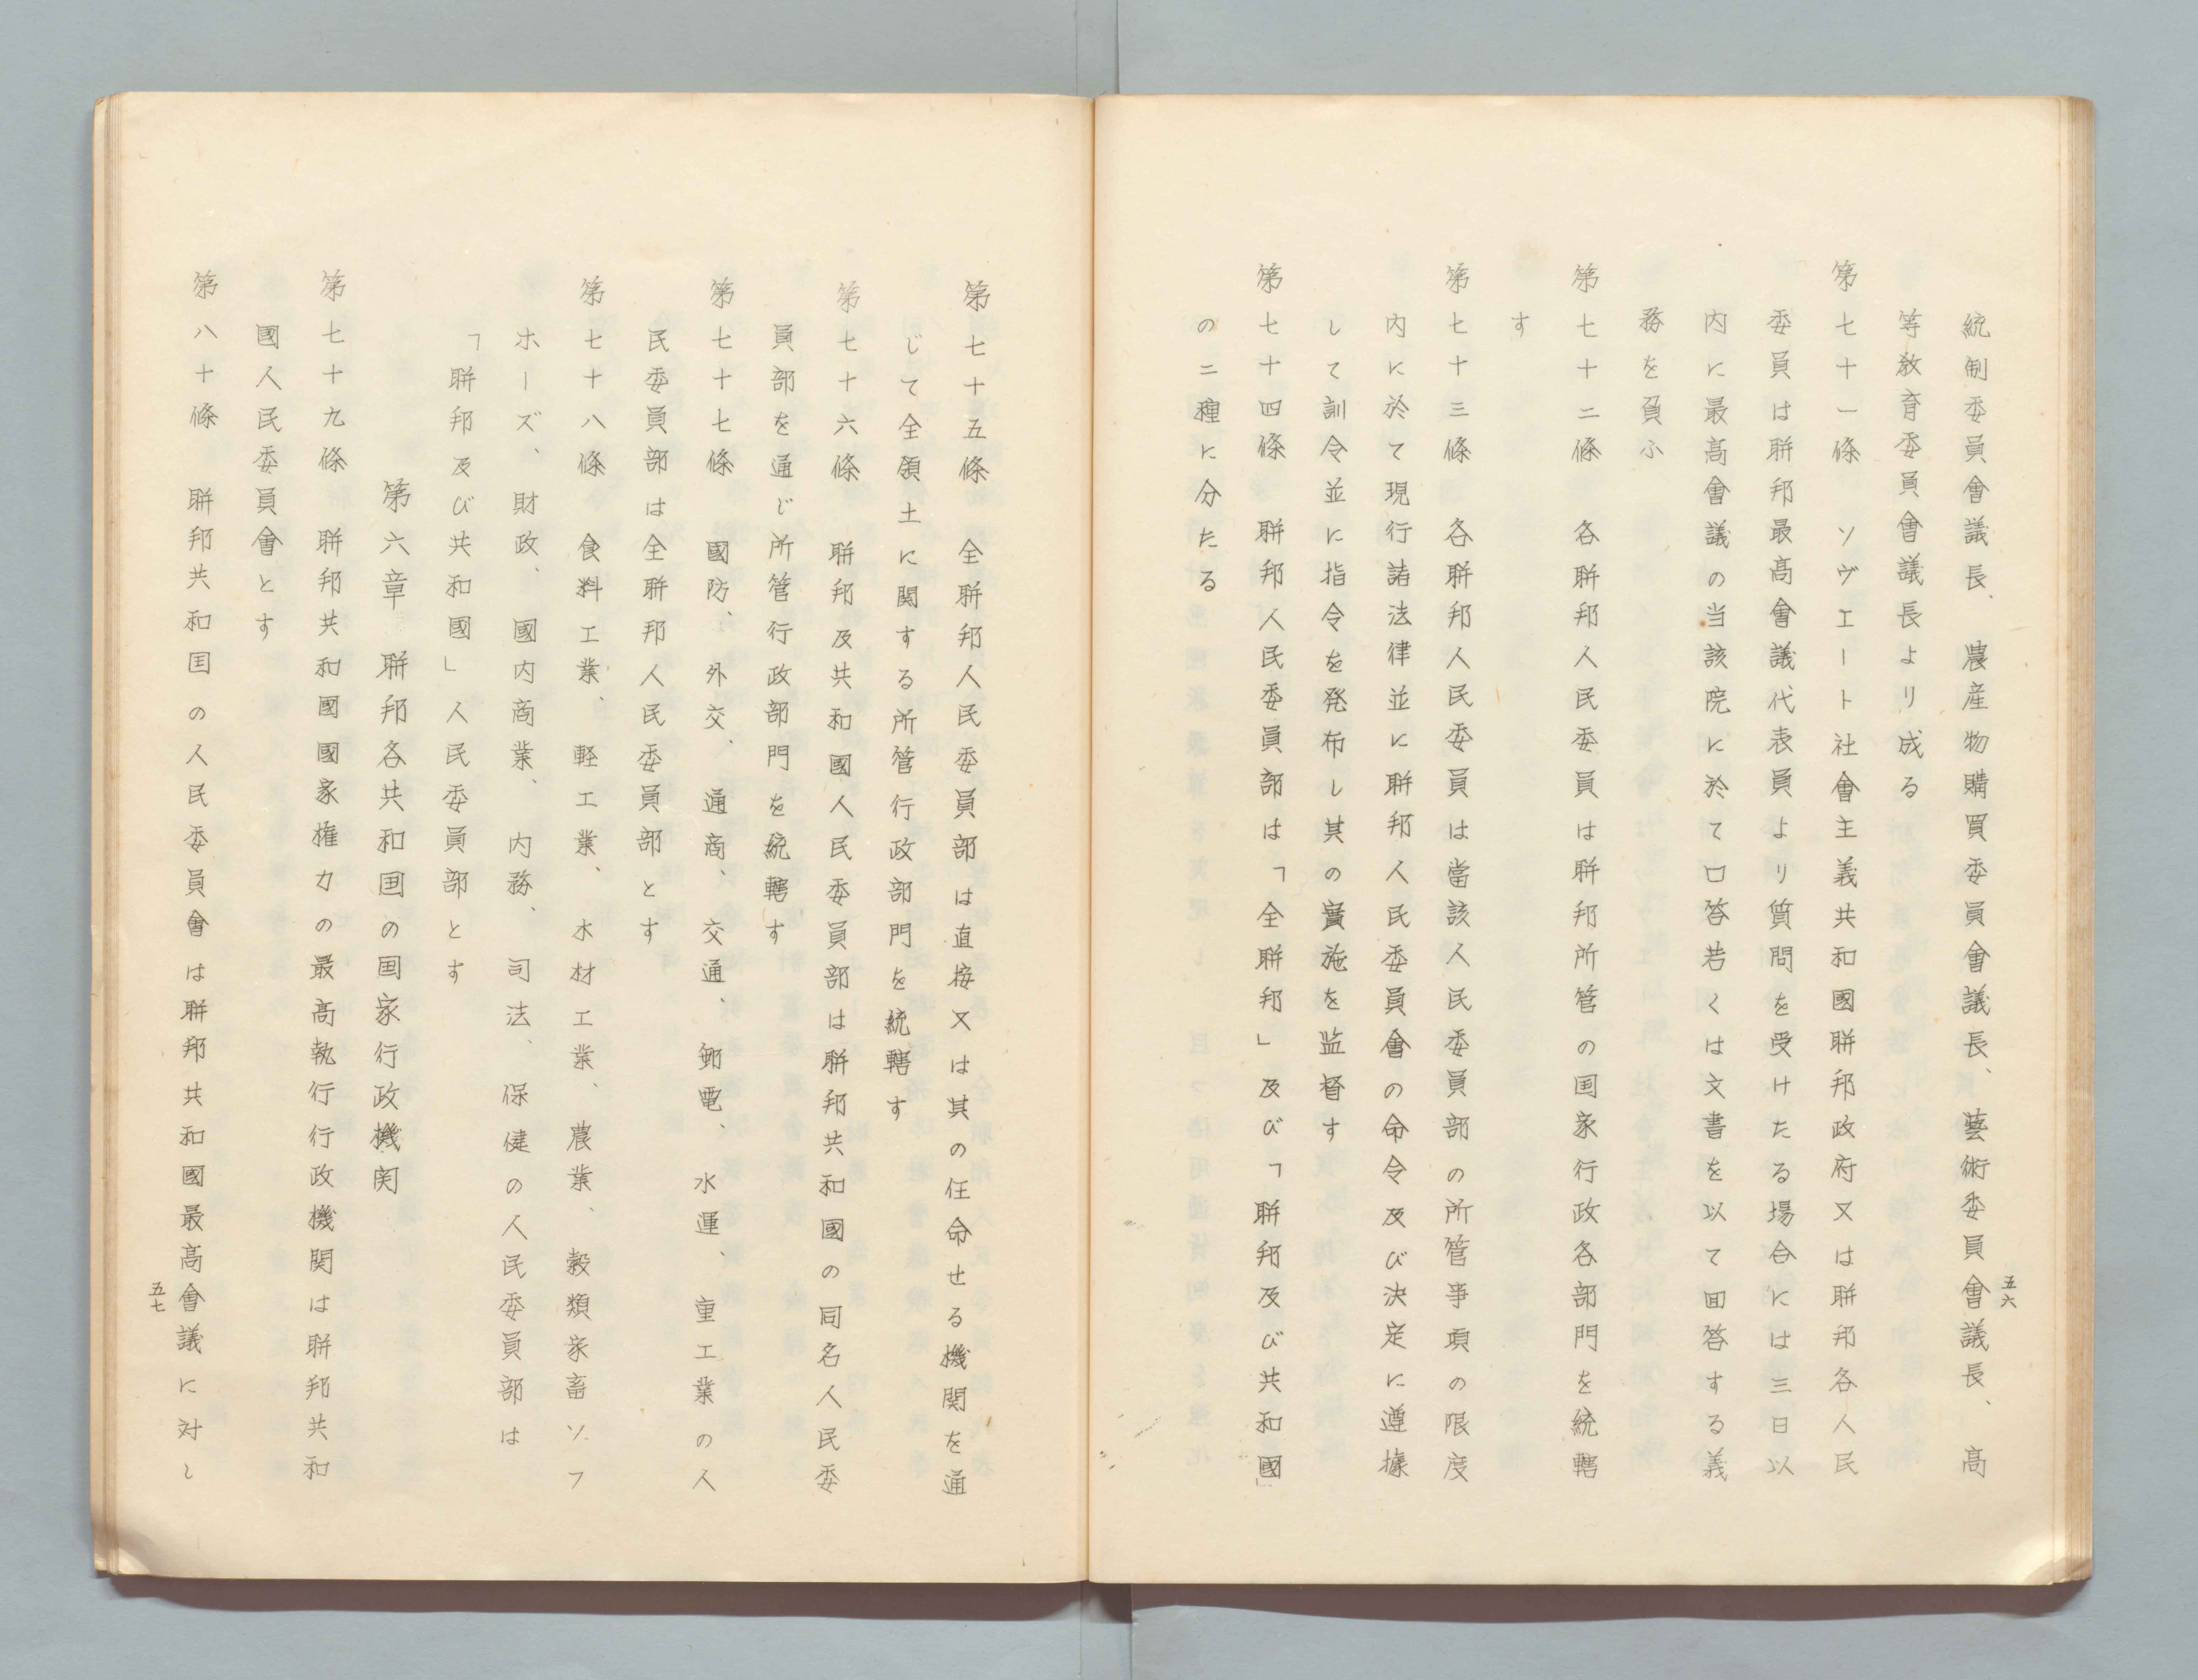 統制委員會議長、農産物購買委員會議長、藝術委員會議長、高
等敎育委員會議長より成る
第七十一條　ソヴエート社會主義共和國聯邦政府又は聯邦各人民
委員は聯邦最高會議代表員より質問を受けたる場合には三日以
内に最高會議の当該院に於て口答若くは文書を以て囬答する義
務を負ふ
第七十二條　各聯邦人民委員は聯邦所管の国家行政各部門を統轄
す
第七十三條　各聯邦人民委員は當該人民委員部の所管事項の限度
内に於て現行諸法律並に聯邦人民委員會の命令及び決定に遵據
して訓令並に指令を発布し其の實施を監督す
第七十四條　聯邦人民委員部は「全聯邦」及び「聯邦及び共和國」
の二種に分たる
五六
第七十五條　全聯邦人民委員部は直接又は其の任命せる機関を通
じて全領土に関する所管行政部門を統轄す
第七十六條　聯邦及共和國人民委員部は聯邦共和國の同名人民委
員部を通じ所管行政部門を統轄す
第七十七條　國防、外交、通商、交通、郵電、水運、重工業の人
民委員部は全聯邦人民委員部とす
第七十八條　食料工業、軽工業、木材工業、農業、穀類家畜ソフ
ホーズ、財政、國内商業、内務、司法、保健の人民委員部は
「聯邦及び共和國」人民委員部とす
第六章　聯邦各共和囯の囯家行政機関
第七十九條　聯邦共和國國家権力の最高執行行政機関は聯邦共和
國人民委員會とす
第八十條　聯邦共和囯の人民委員會は聯邦共和國最高會議に対し
五七